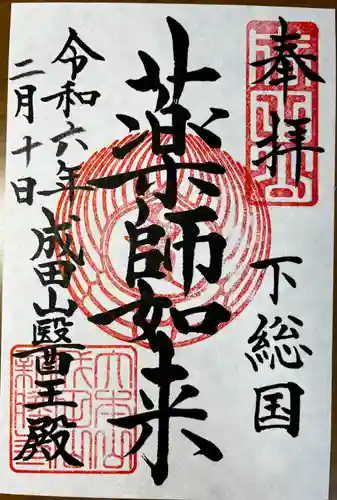 奉拝
下総国
薬師如来
成田山醫王殿
令和六年
二月十日